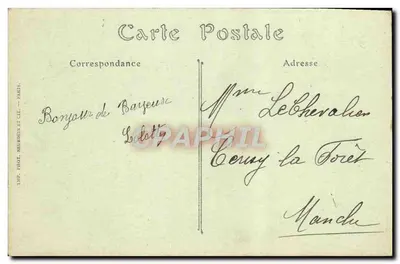 Carte Postale
Correspondance
Adresse
Bonjour de Bayeux
Lolotte
Mme LeChevalier
Cerisy la Forêt
Manche
CARAPHIL